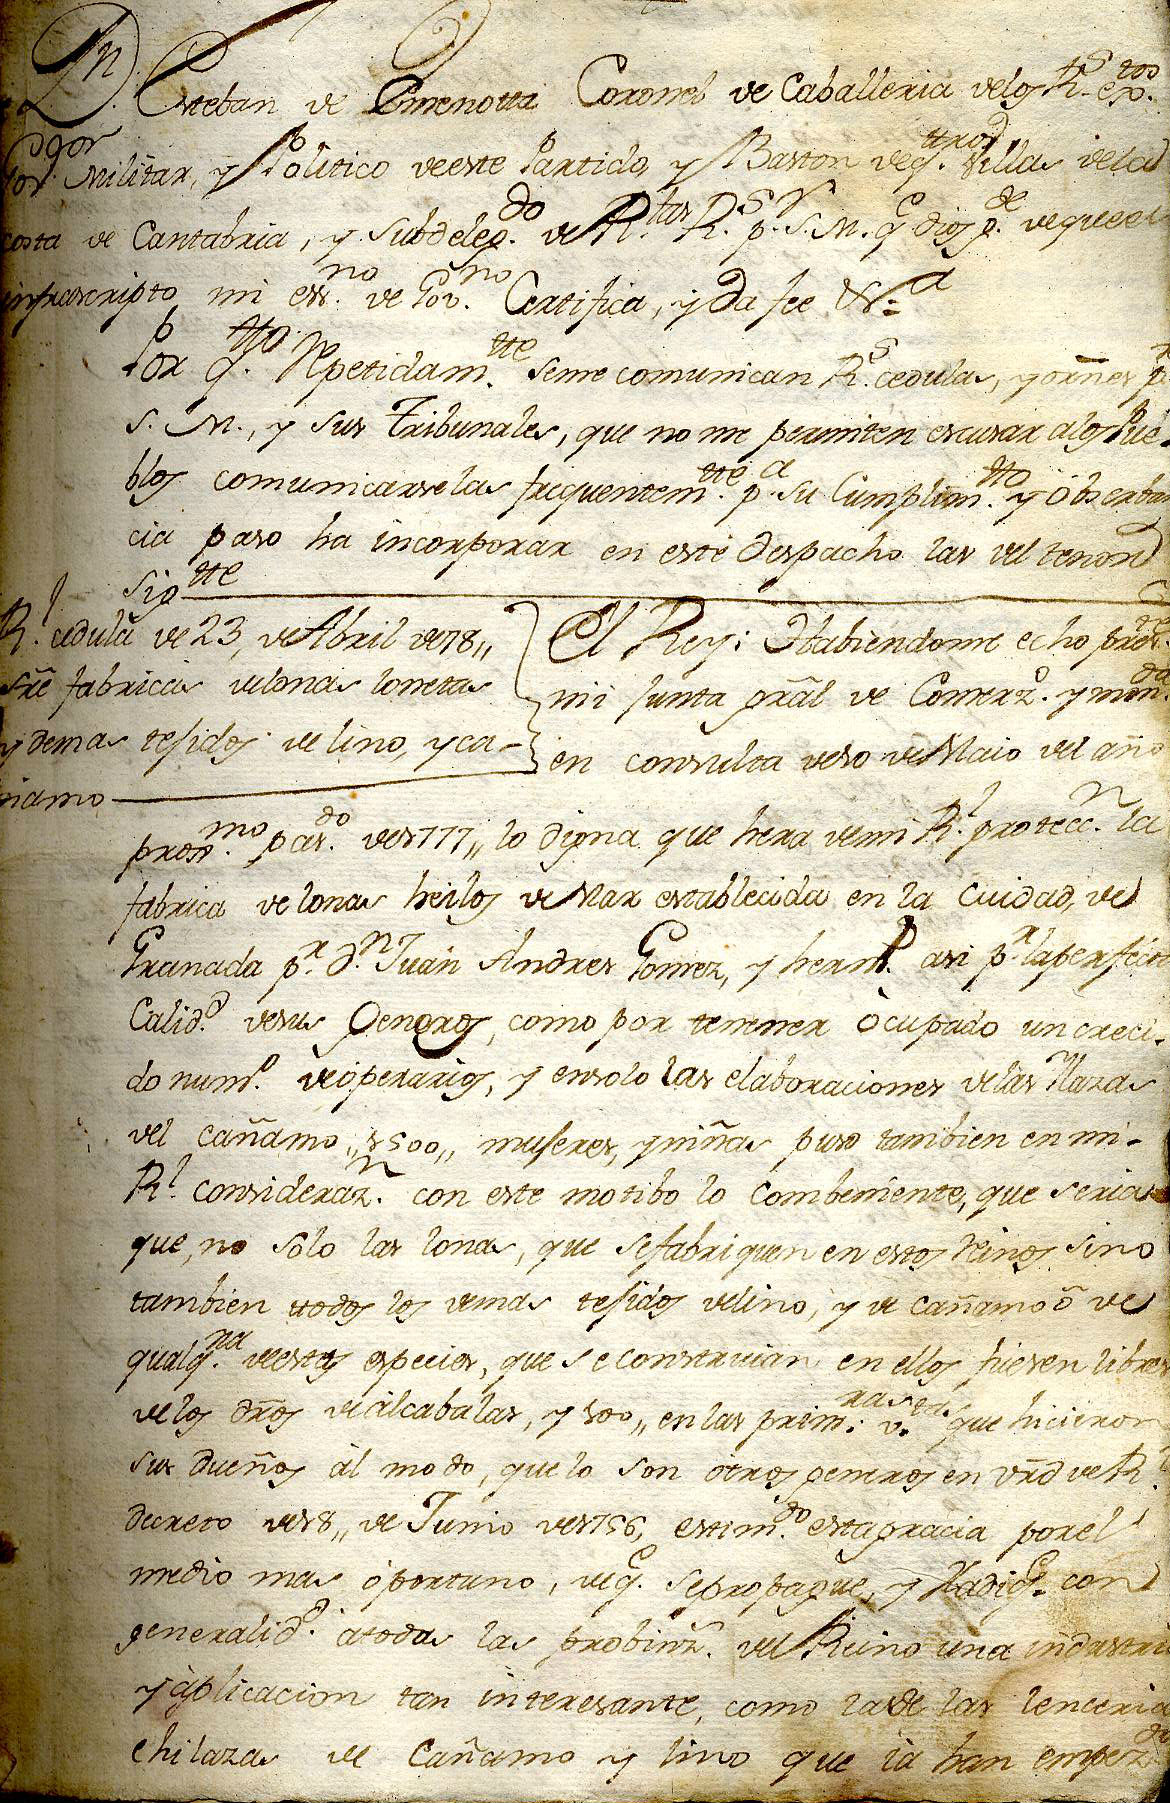 Dn. Esteban de Cimenotta Coronel de Caballeria de los Rs. extos.
Gor. Militar, y Politico de este Partido, y Baston de q.ttro Villas de la
costa de Cantabria, y Subdeleg.do de R.tas R.s p.r S. M. q.e Dios g.de de que el
infrascripto mi ess.no de Gov.no Certifica, y da fee &.a
Por q.tto Repetidam.tte se me comunican R.s cedulas, y orñes p.r
S. M., y sus Tribunales, que no me permiten escusar a los Pue-
blos comunicarselas frequentem.tte p.a su Cumplim.tto y Obserban
cia paso ha incorporar en este despacho las del tenor
sig.tte
R.l cedula de 23, de Abril de 78,,
sre fabricas de lonas lonetas
y demas tefidos de lino, y ca-
ñamo
El Rey: Habiendome echo pres.te
mi Junta gral de Comerz.o y mon.da
en consulta de 20 de Maio del año
prox.mo pas.do de 1777,, lo digna que hera de mi R.l protecc.n la
fabrica de lonas heilos de Mar establecida en la Cuidad, de
Granada p.r d.n Juan Andres Gomez, y herm.o asi p.r la perfecion
Calid.d de sus Generos, como por tenener òcupado un creci-
do num.o de òperarios, y en solo las elaboraciones de las Ilazas
del cañamo ,,1500,, mujeres, y niñas puso tambien en mi-
R.l consideraz.n con este motibo lo combeniente, que seria
que, no sòlo las lonas, que se fabriquen en estos Reinos sino
tambien ttodos los demas tejidos de lino, y de cañamo ò de
qualq.ra de estas especies, que se construian en ellos fuesen libres
de los dños de alcabalas, y 100,, en las prim.ras v.tas que hicieron
sus dueños àl modo, que lo son otros generos en vrd de R.l
decreto de 18,, de Junio de 1756, estim.do esta gracia por el
medio mas òportuno, de q.e se propague, y Radiq.e con
generalid.d à todas las probinz.s del Reino una industria
y àplicacion tan interesante, como la de las lenceria
e hilazas de Cañamo y lino que ia han empez.do